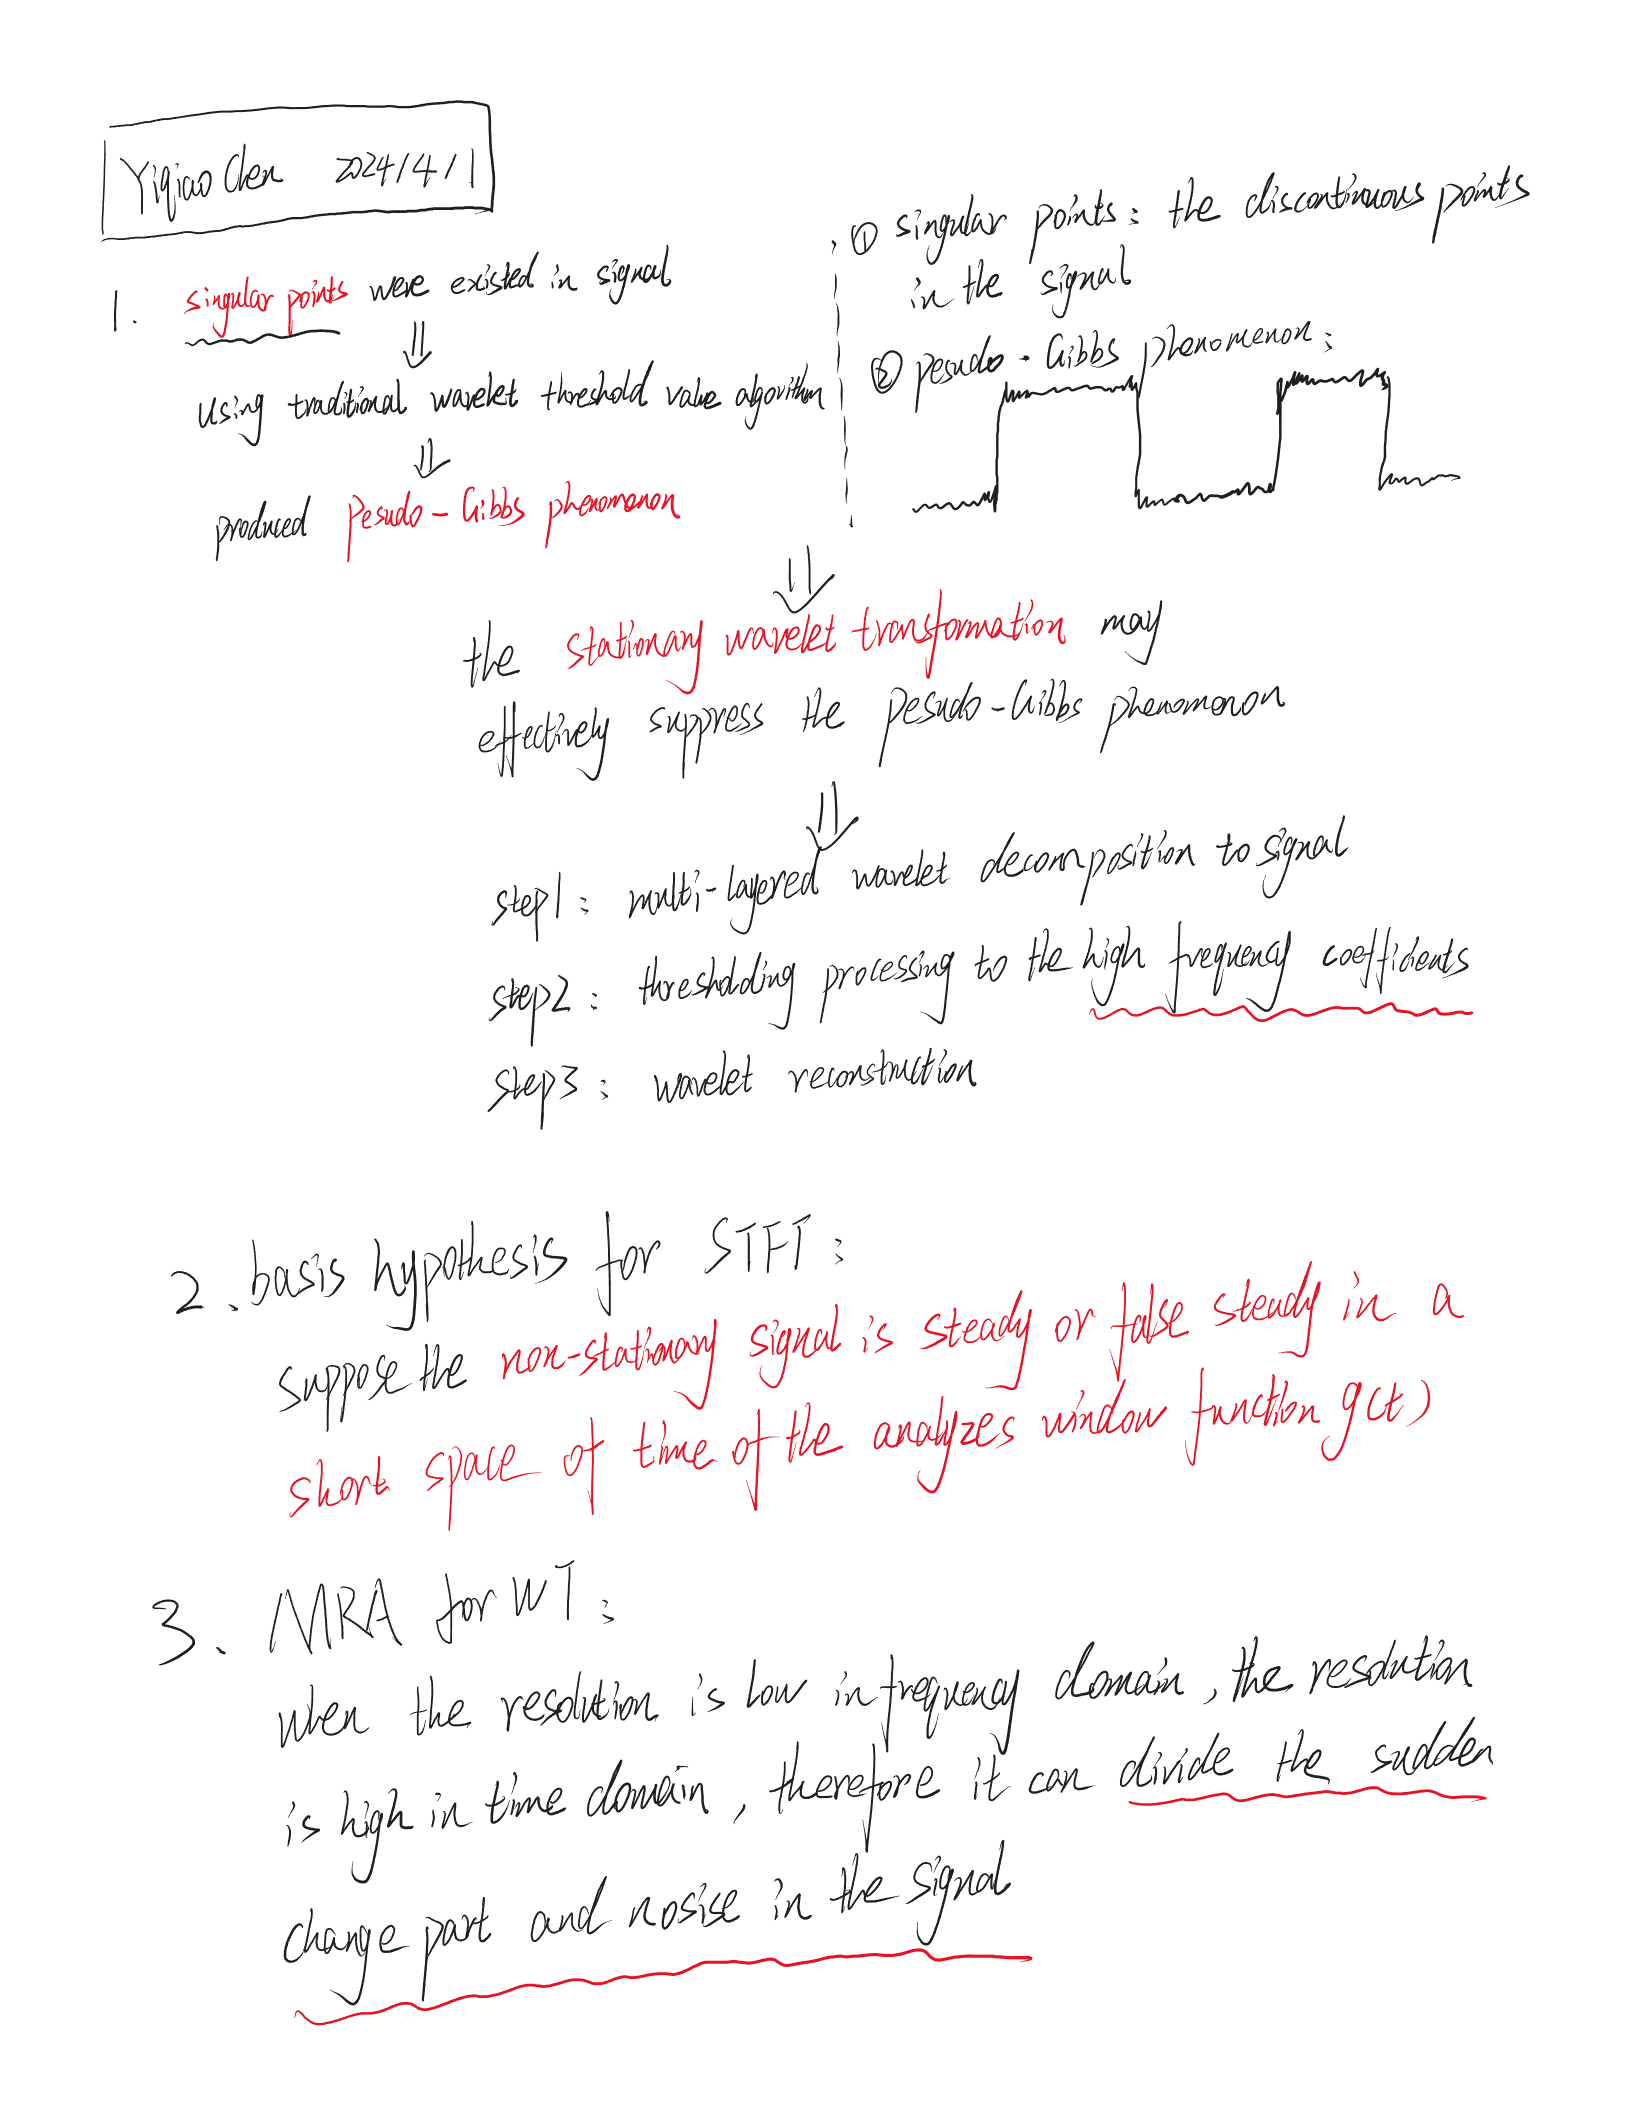 Yiqiao Chen 2024/4/1
1. singular points were existed in signal
⇓
using traditional wavelet threshold value algorithm
⇓
produced Pesudo-Gibbs phenomenon
① singular points: the discontinuous points
in the signal
② pesudo-Gibbs phenomenon:
⇓
the stationary wavelet transformation may
effectively suppress the pesudo-Gibbs phenomenon
⇓
step1: multi-layered wavelet decomposition to signal
step2: thresholding processing to the high frequency coefficients
step3: wavelet reconstruction
2. basis hypothesis for STFT:
suppose the non-stationary signal is steady or false steady in a
short space of time of the analyzes window function g(t)
3. MRA for WT:
when the resolution is low in frequency domain, the resolution
is high in time domain, therefore it can divide the sudden
change part and nosise in the signal